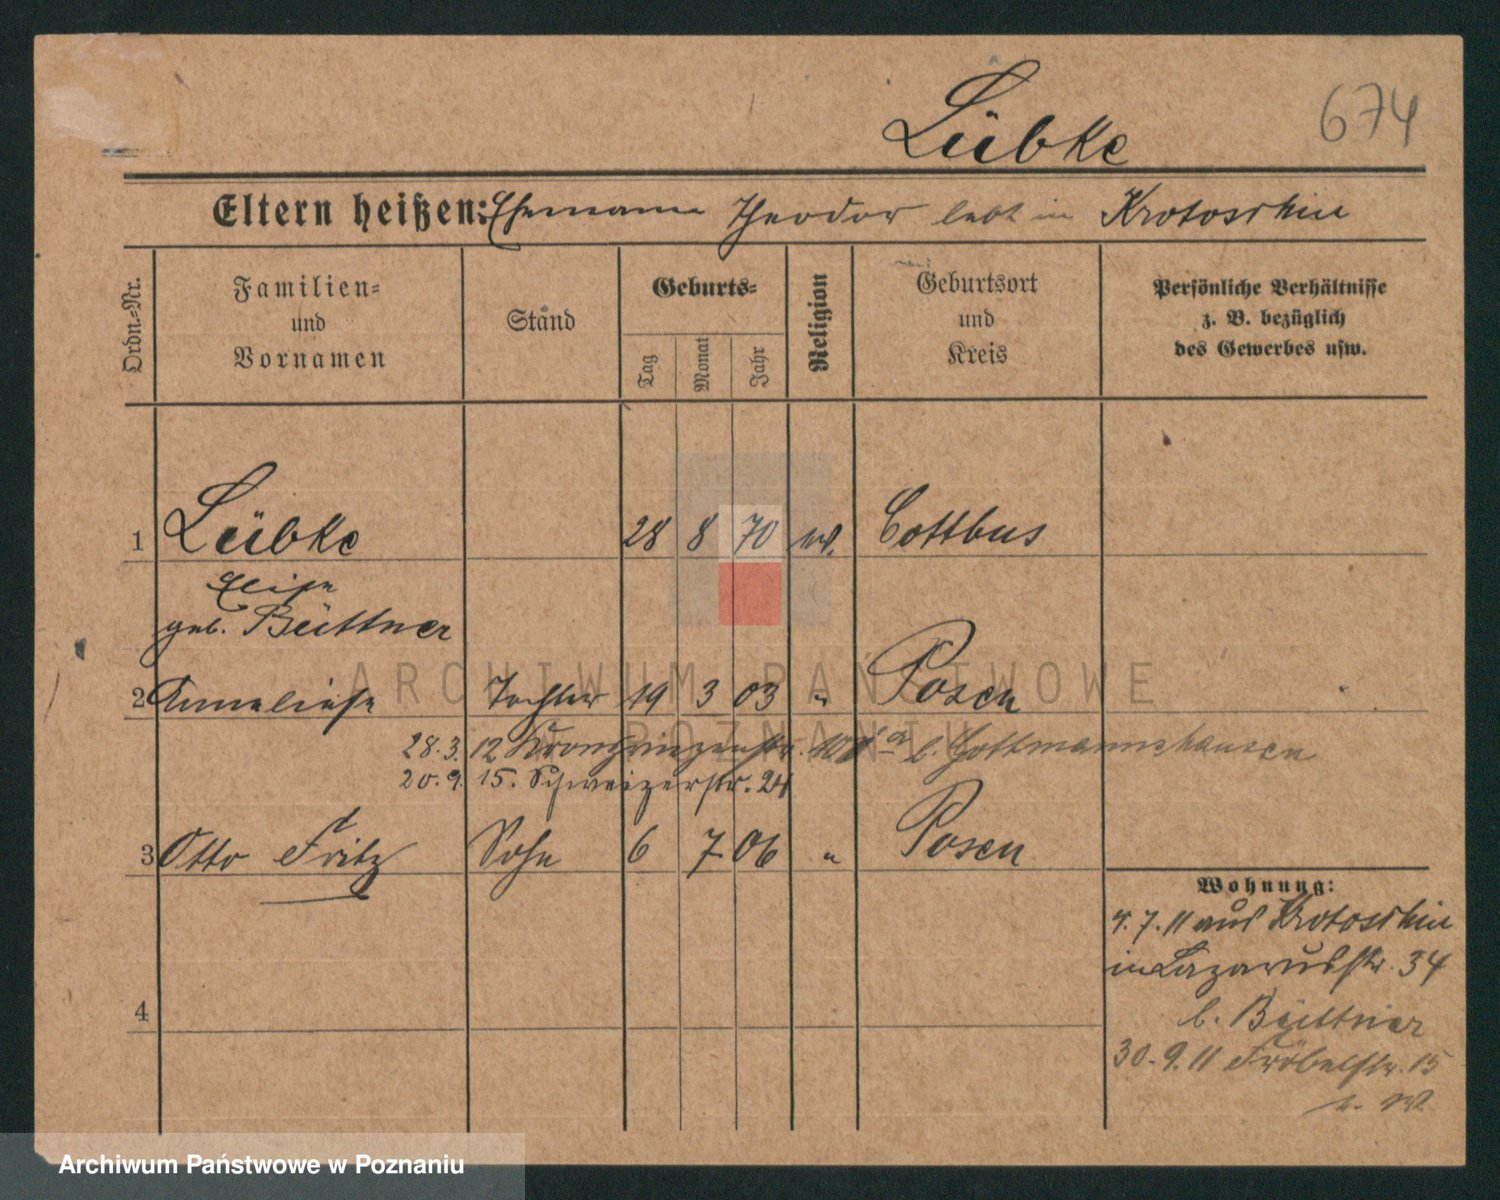 Lübke
674
Eltern heißen: Ehemann Theodor lebt in Krotoschin
Ordn.-Nr.
Familien-
und
Vornamen
Stand
Geburts-
Tag
Monat
Jahr
Religion
Geburtsort
und
Kreis
Persönliche Verhältnisse
z. B. bezüglich
des Gewerbes usw.
1 Lübke 28 8 70 ev. Cottbus
Elise
geb. Büttner
2 Anneliese Tochter 19 3 03 " Posen
28.3.12 Kronprinzenstr. b. Gottmannshausen
20.9.15. Schweizerstr. 24
3 Otto Fritz Sohn 6 7 06 " Posen
Wohnung:
4.7.11 aus Krotoschin
in Lazarusstr. 34
b. Büttner
30.9.11 Fröbelstr. 15
4
ARCHIWUM PAŃSTWOWE
W POZNANIU
Archiwum Państwowe w Poznaniu